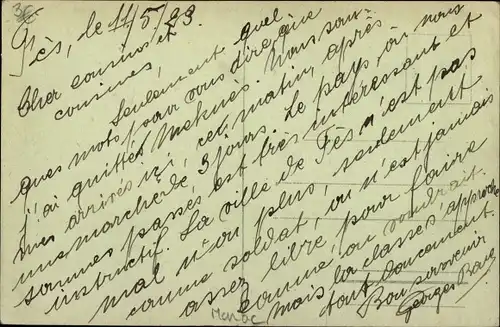 Fès, le 11/5/23.
Cher cousins et
cousines,
Seulement quel
ques mots pour vous dire que
j'ai quitté Meknes. Nous som-
mes arrivés ici, ce matin, après
une marche de 3 jours. Le pays, où nous
sommes passés est très intéressant et
instructif. La ville de Fès n'est pas
mal non plus, seulement
comme soldat, on n'est jamais
assez libre, pour faire
comme on voudrait.
Mais la classe s'approche
tout doucement.
Bon souvenir
Georges
Maroc